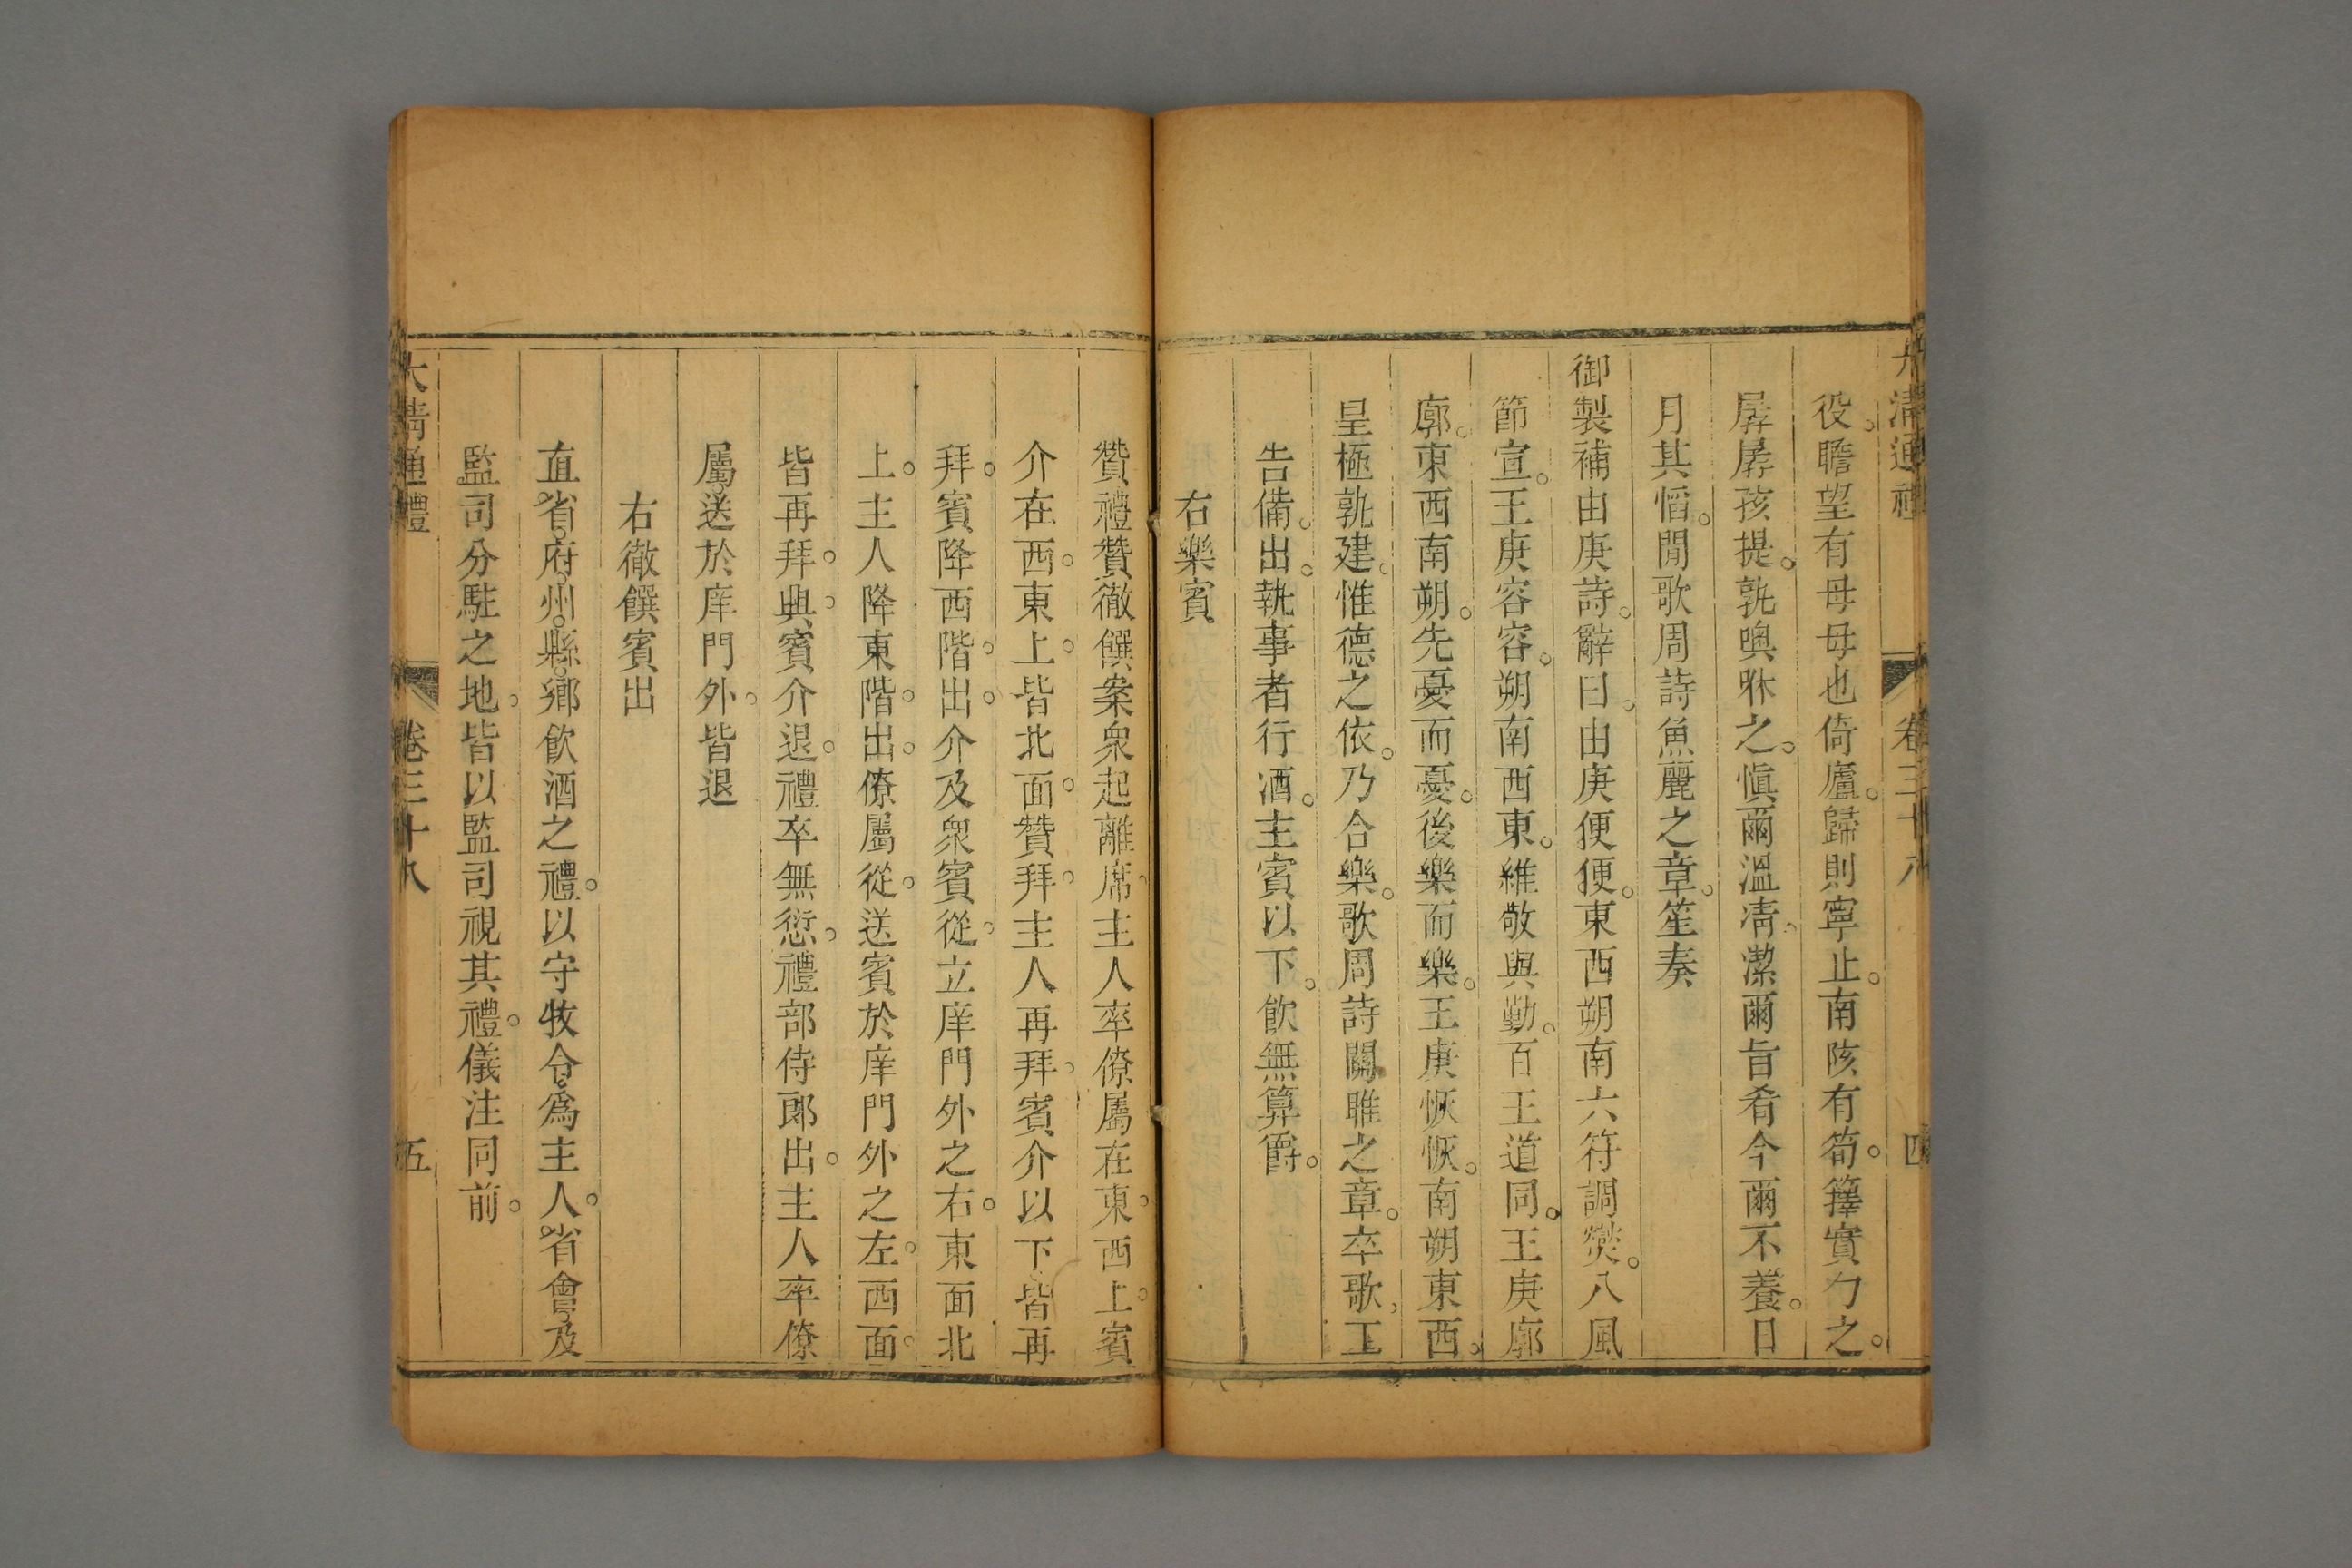 大清通禮 卷三十八 四
役。瞻望有母母也倚廬。歸則寧止。南陔有筍。籜實勹之。
孱孱孩提。孰噢咻之。愼爾溫凊。潔爾旨肴今爾不養。日
月其慆。閒歌周詩魚麗之章。笙奏
御製補由庚詩。辭曰。由庚便便。東西朔南六符調爕。八風
節宣。王庚容容。朔南西東。維敬與勤。百王道同。王庚廓
廓。東西南朔。先憂而憂。後樂而樂。王庚恢恢。南朔東西。
皇極孰建。惟德之依。乃合樂。歌周詩關雎之章。卒歌。工
告備。出。執事者行酒。主賓以下。飲無算爵。
右樂賓
贊禮贊徹饌案衆起離席。主人率僚屬在東。西上。賓
介在西。東上。皆北面。贊拜。主人再拜。賓介以下皆再
拜。賓降西階。出。介及衆賓從。立庠門外之右。東面北
上。主人降東階。出。僚屬從。送賓於庠門外之左。西面。
皆再拜。興。賓介退。禮卒無愆。禮部侍郎出。主人率僚
屬送於庠門外。皆退
右徹饌賓出
直省。府。州。縣。鄉飲酒之禮。以守牧令。爲主人。省會。及
監司分駐之地。皆以監司視其禮。儀注同前。
大清通禮 卷三十八 五